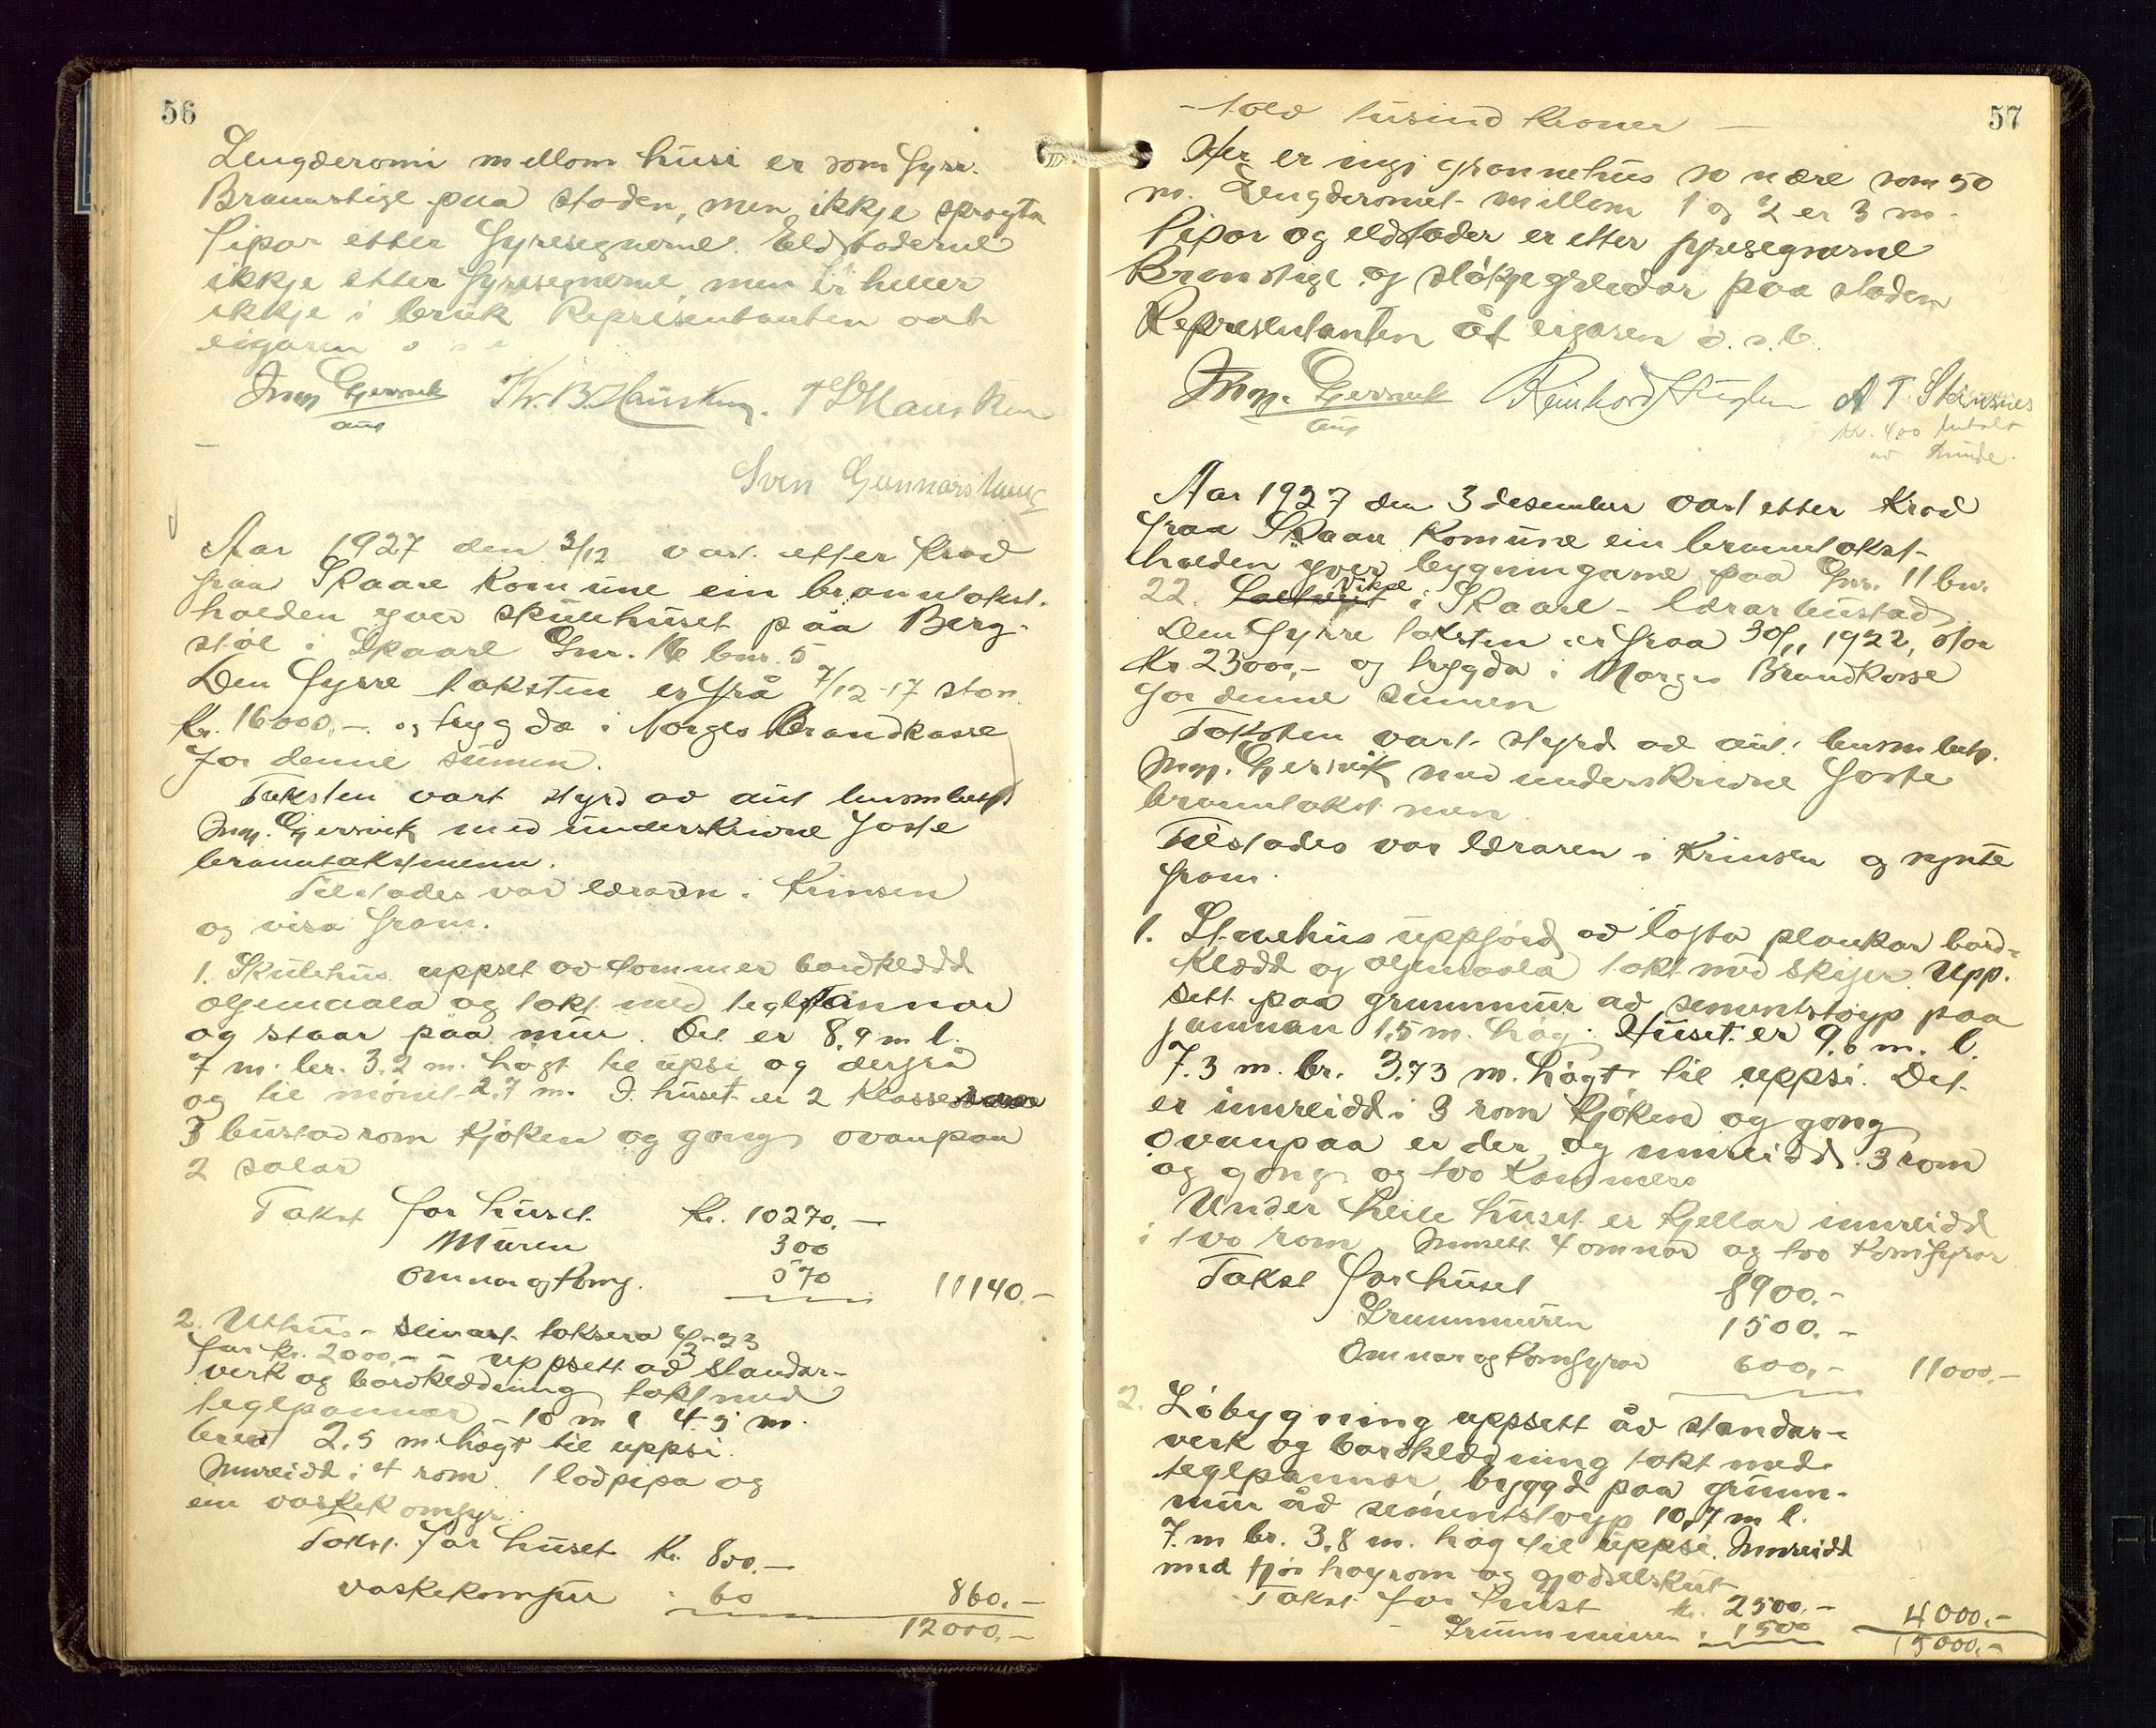 56
Lengderomi mellom husi er som fyrr.
Brannstige paa staden, men ikkje sprøyta
Pipor etter fyresegnerne. Eldstaderne
ikkje etter fyresegnerne, men er heller
ikkje i bruk Representanten aat
eigaren
Ing. Gjersvik Kr. B. Hausken. T L Hausken
aut
Sven Gunnarshaug
Aar 1927 den 3/12 vart etter krav
fraa Skaare Komune ein branntakst
halden yver skulehuset paa Berg-
støl i Skaare Gnr. 16 bnr. 5
Den fyrre taksten er frå 7/12-17 stor
Kr. 16000,-. og trygda i Norges Brandkasse
for denne sumen.
Taksten vart styrd av aut
Ing. Gjersvik med underskrivne faste
branntakstmenn.
Tilstades var læraren i Krinsen
og visa fram.
1. Skulehus uppset av tommer bordkledd
oljemaala og tekt med teglpannor
og staar paa mur. Det er 8,9 m l.
7 m. br. 3,2 m. høgt til upsi og derfrå
og til mønet 2,7 m. I huset er 2 klasse
3 bustadrom kjøken og gong ovanpaa
2 salar
Takst for huset Kr. 10270,-
Muren 300
Omnar og Komf. 570 11140.-
2. Uthus - seinast taksera 23
for kr. 2000,- - uppsett av standar-
verk og bordkledning tekt med
teglpannor - 10 m l 4.5 m.
breid 2.5 m høgt til uppsi.
Innreidd i 4 rom. 1 lodpipa og
ein vaskekomfyr.
Takst for huset Kr. 800.-
vaskekomfur " 60 860.-
12000,-
57
- tolv tusind kroner -
Her er ingi grannehus so nære som 50
m. Lengderomet millom 1 og 2 er 3 m.
Pipor og eldstader er etter fyresegnerne
Brannstige og sløkjegreidor paa staden
Representanten åt eigaren o. s. b.
Ing. Gjersvik Reinhard A T. Steinsnes
aut Kr. 4,00 betalt
av
Aar 1927 den 3 desember vart etter Krav
fraa Skaare Komune ein branntakst-
halden yver bygningarne paa Gnr. 11 bn.
22. Vikje i Skaare - lærarbustad
Den fyrre taksten er fraa 30/11 1922, stor
Kr 23000,- og trygda i Norges Brandkasse
for denne sumen
Taksten vart styrd av aut.
Ing. Gjersvik med underskrivne faste
branntakstmen
Tilstades var læraren i Krinsen og synte
fram.
1. Stovehus uppførd av lafta plankar bord-
kledd og oljemaala tekt med skifer. Upp-
sett paa grunnmur av sementstøyp paa
jamnan 1.5 m. høg. Huset er 9.6 m. l.
7.3 m. br. 3.73 m. høgt til uppsi. Det
er innreidd i 3 rom kjøken og gong
ovanpaa er der og innreidd. 3 rom
og gong og two kammers
Under heile huset er kjellar innreidd
i two rom Innsett 4 omnar og two Komfyrar
Takst for huset 8900.-
Grunnmuren 1500.-
Omnar og Komfyrar 600,- 11000.-
2. Løbygning uppsett åv standar-
verk og bordkledning tekt med
teglpannor, byggd paa grunn-
mur åv sementstøyp 10,7 m l.
7. m br. 3.8 m. høg til uppsi. Innreidd
med fjøs høyrom og gjødselskut
Takst for huset kr. 2500.-
Grunnmuren " 1500 4000.-
15000.-